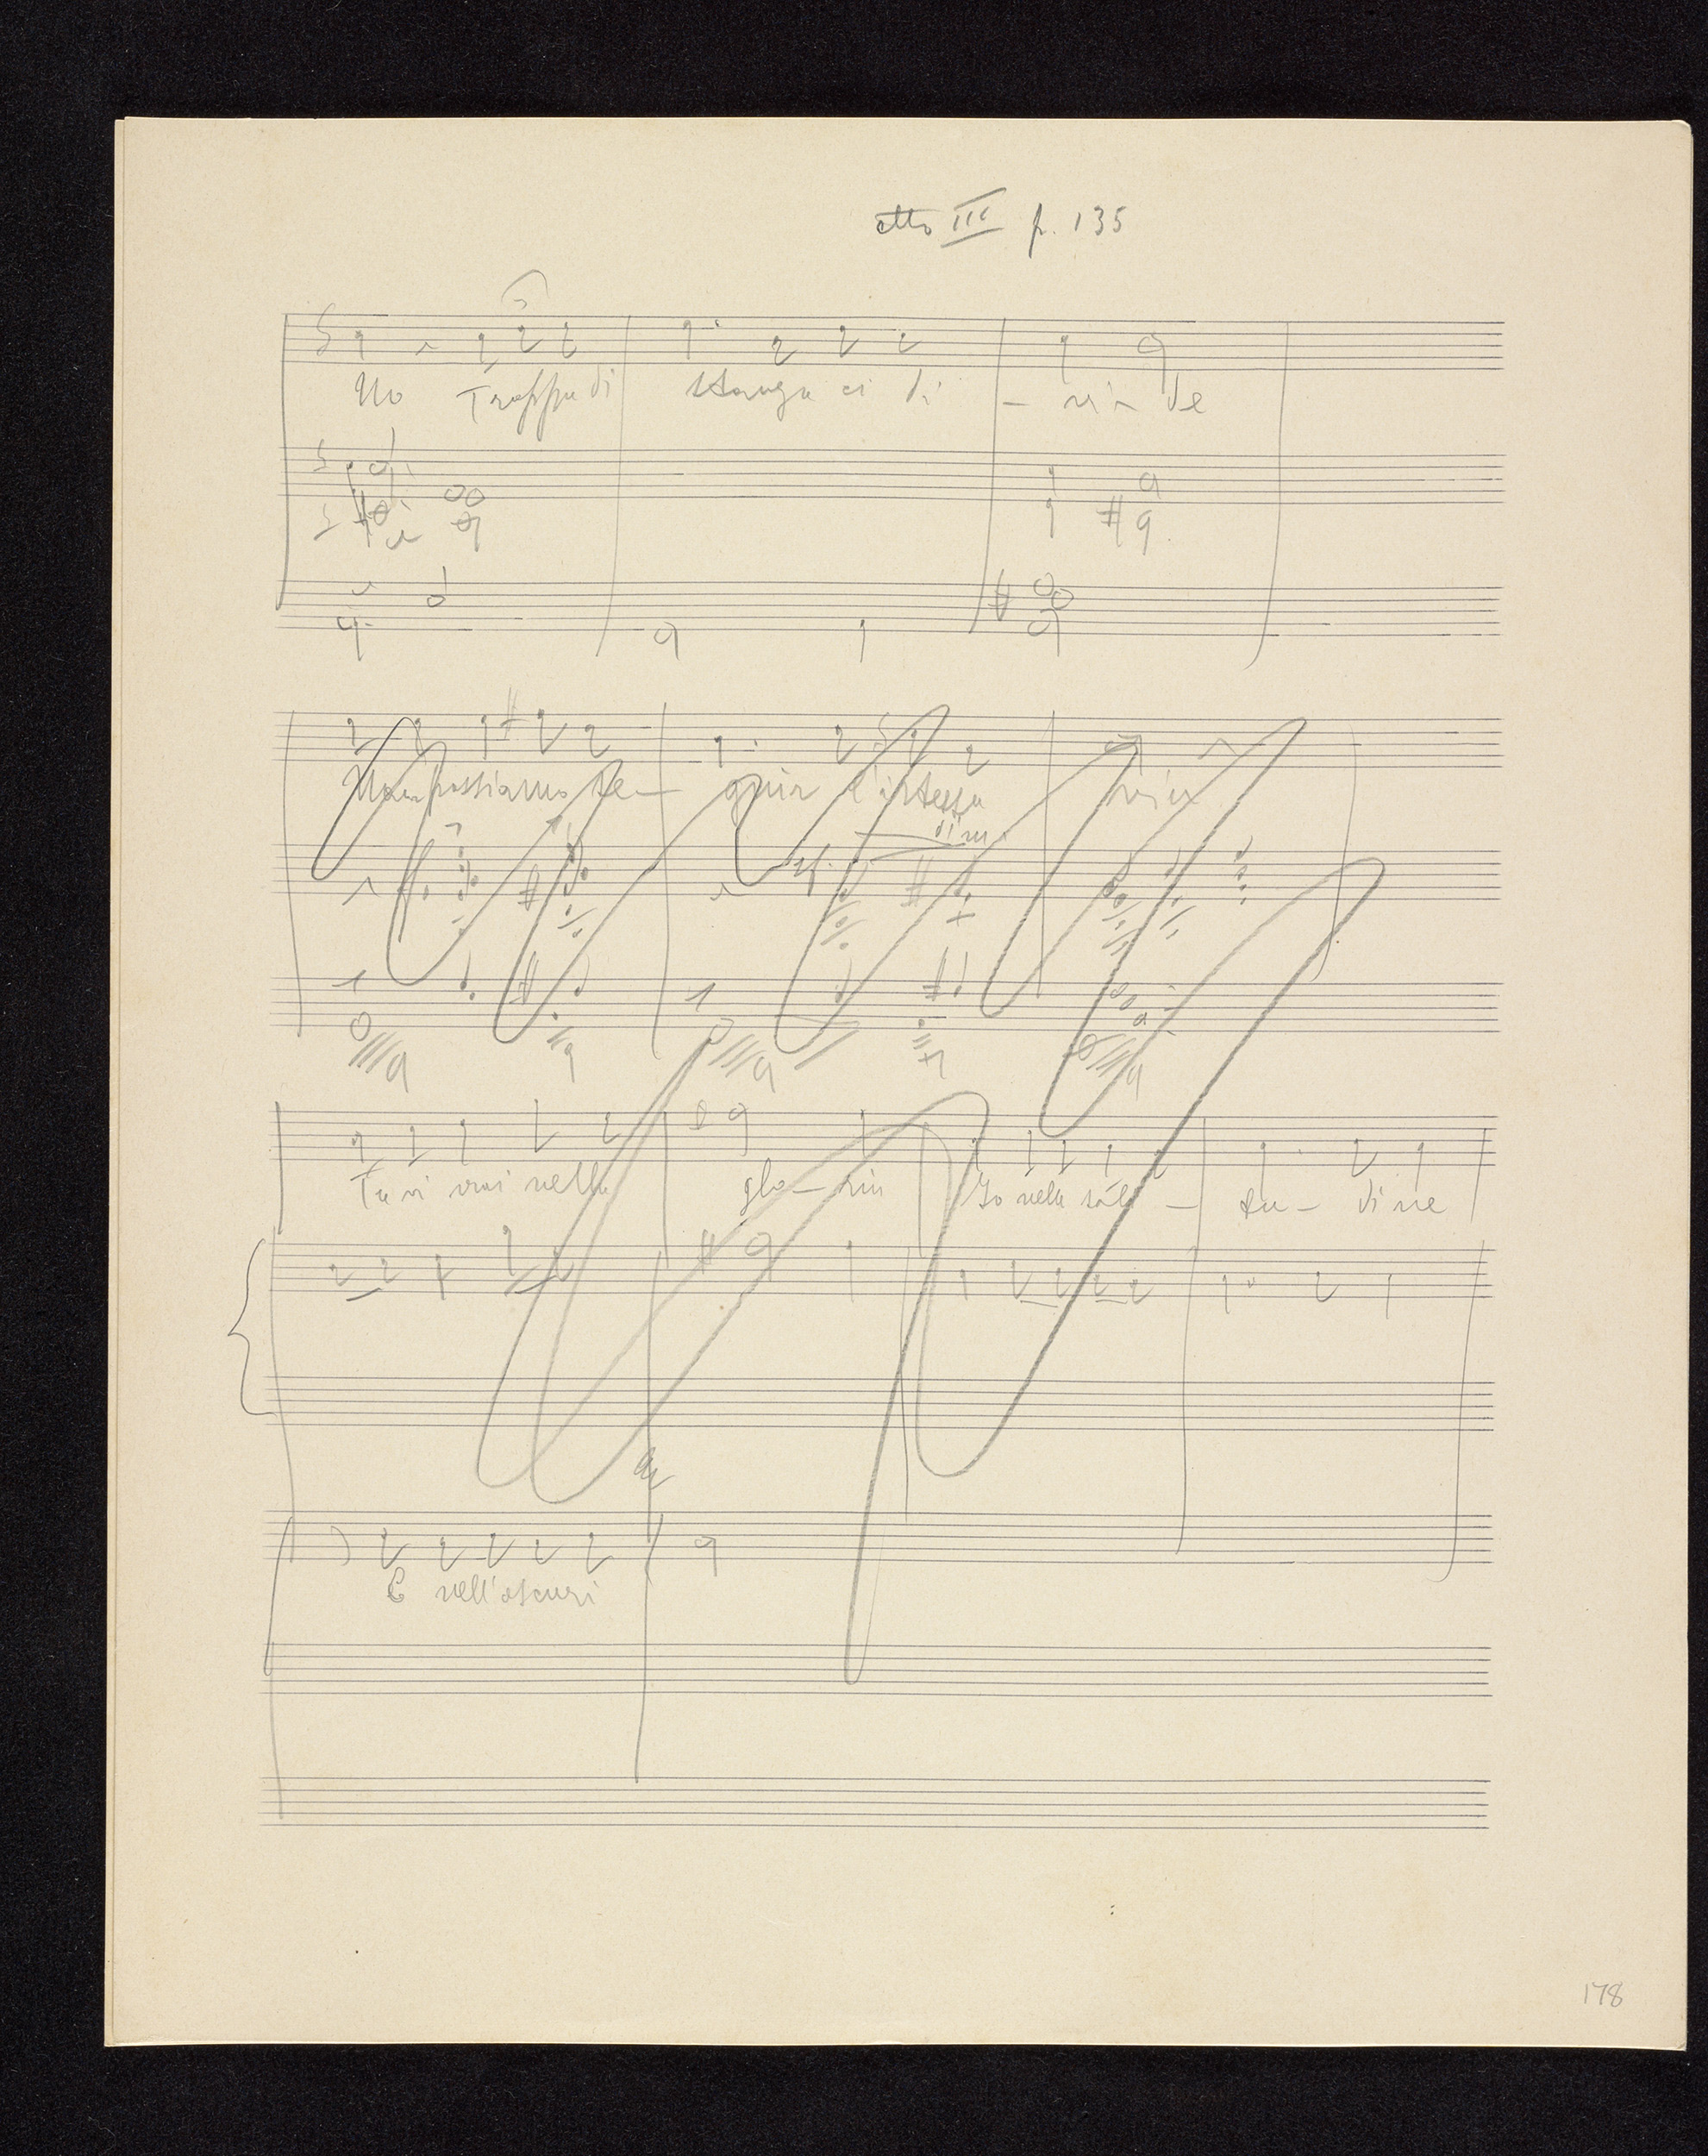 atto III p. 135
No Troppa di stanza ci di - vi - de
Non possiamo se - guir l'istessa via
dim.
sf.
Tu vi vrai nella glo - ria Io nella soli - tu - dine
E nell'oscuri
178